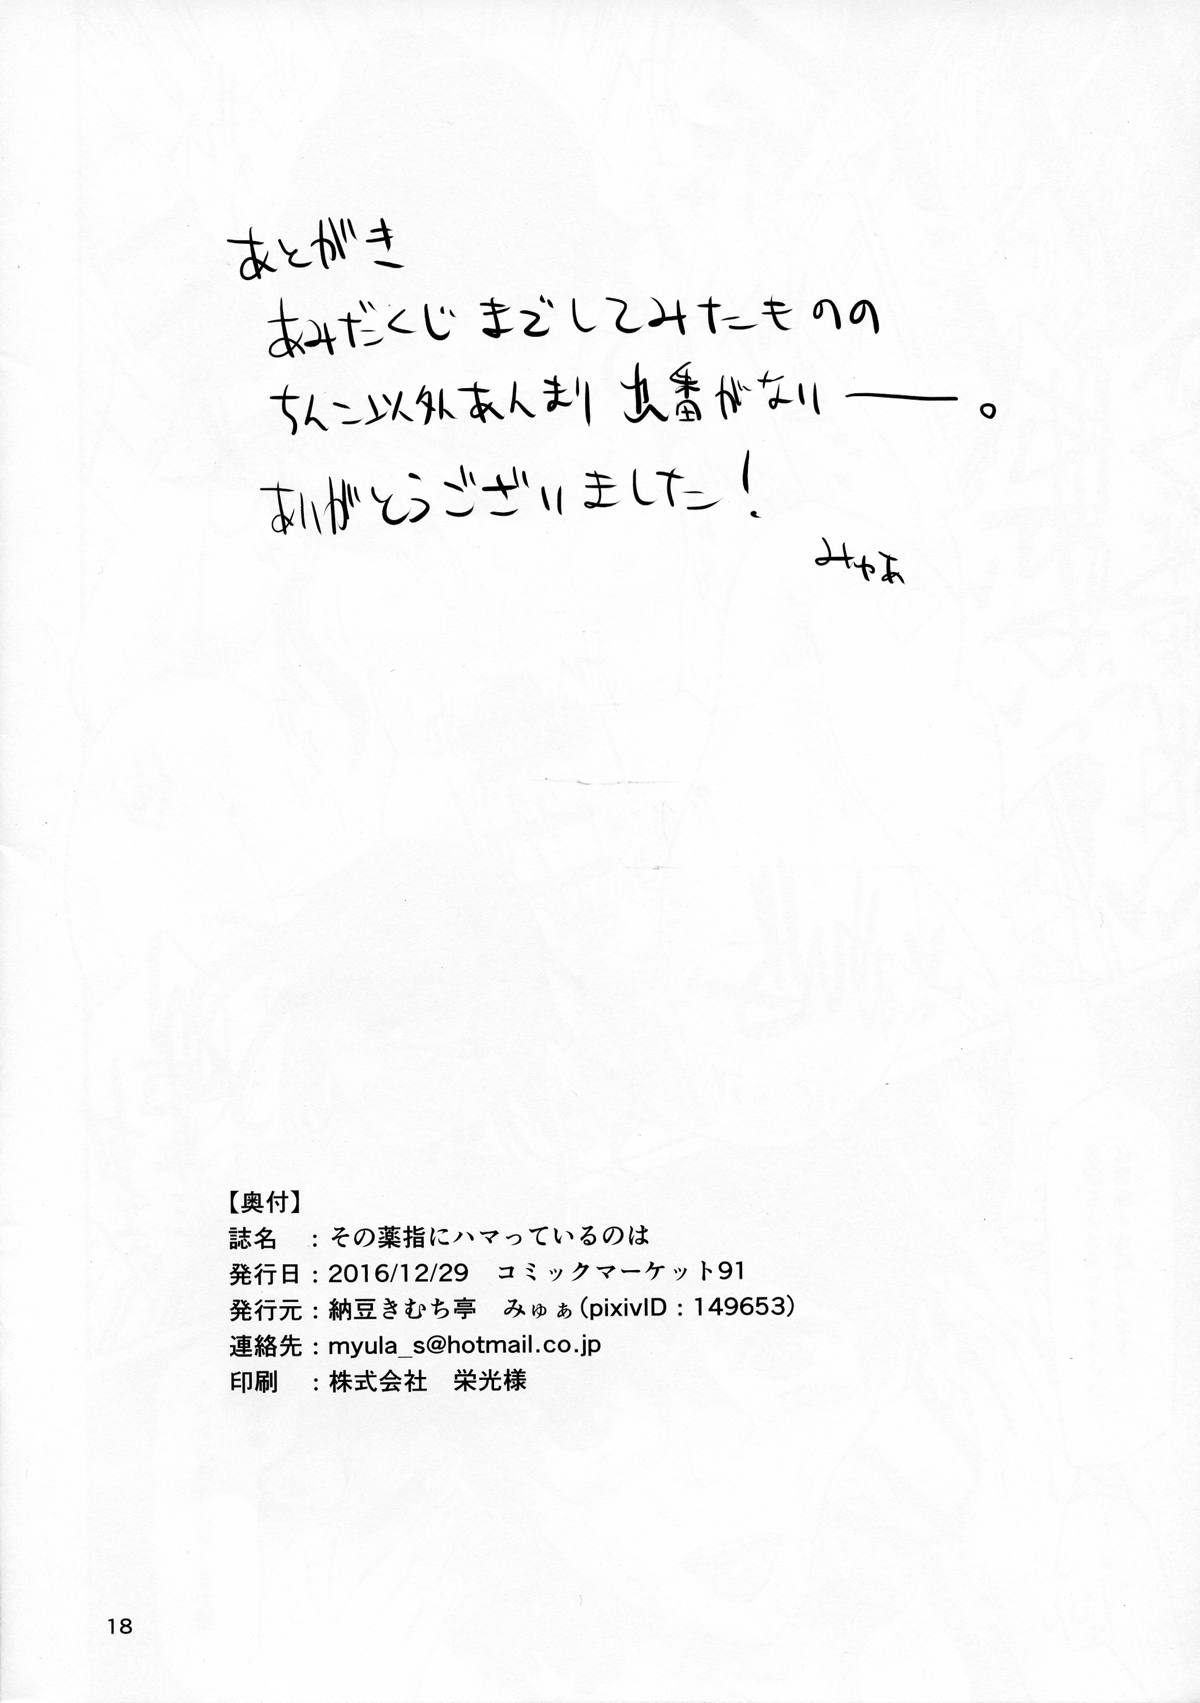 あとがき
あみだくじまでしてみたものの
ちんこ以外あんまり出番がないー。
ありがとうございました!
みゅあ
【奥付】
誌名　:その薬指にハマっているのは
発行日:2016/12/29　コミックマーケット91
発行元:納豆きむち亭　みゅぁ(pixivID:149653)
連絡先:myula_s@hotmail.co.jp
印刷　:株式会社　栄光様
18